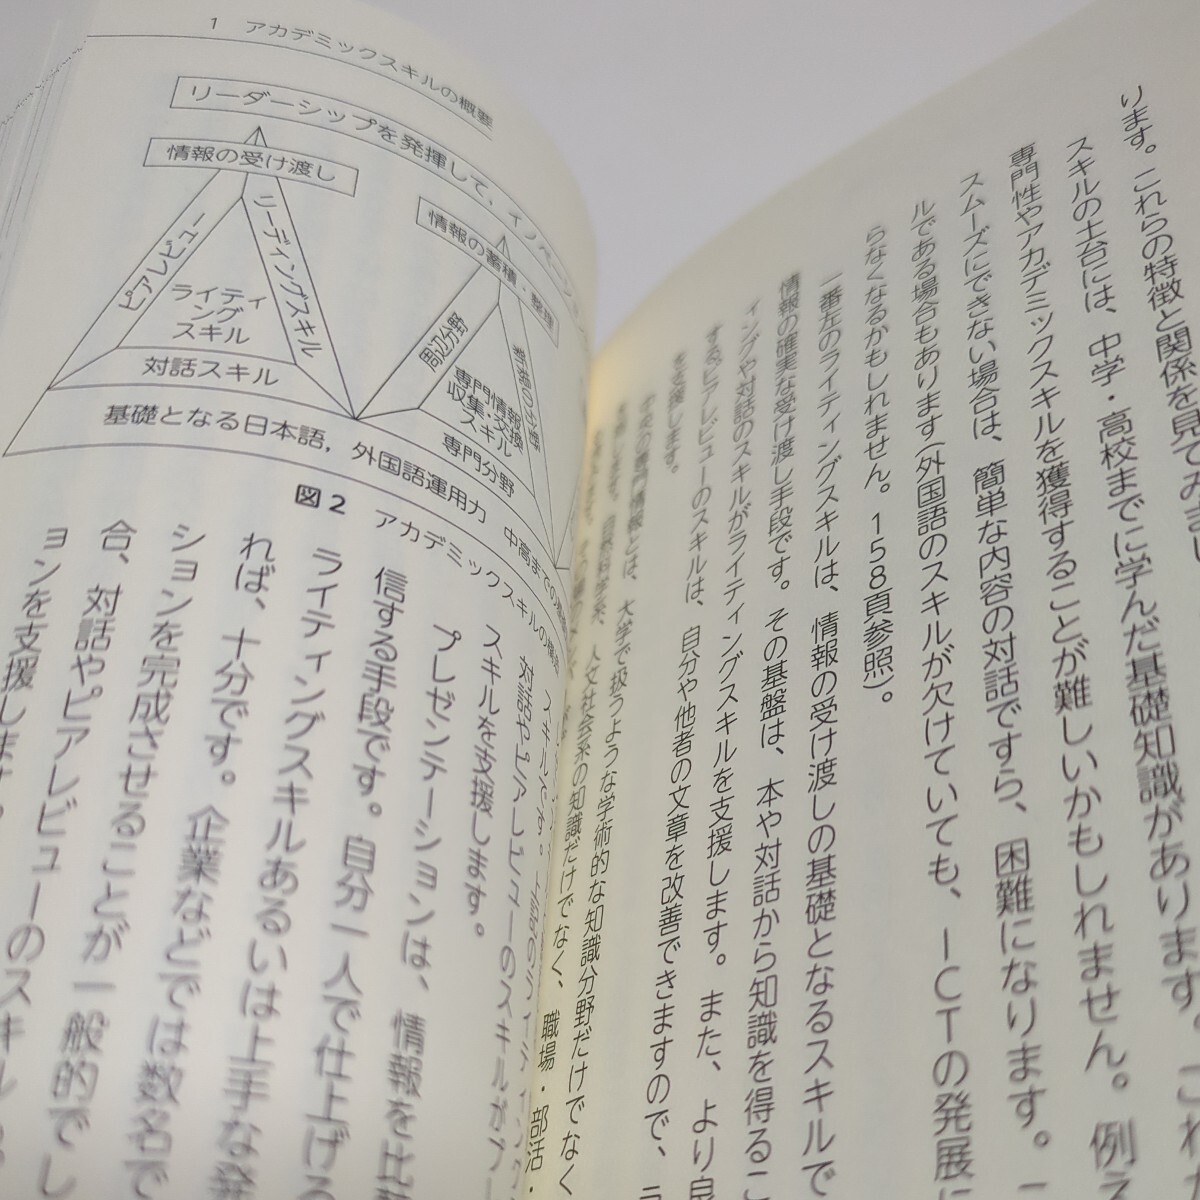 1 アカデミックスキルの概要
リーダーシップを発揮して，イノベーシ
情報の受け渡し
ピアレビュー
リーディングスキル
ライティ
ングスキル
対話スキル
情報の蓄積・整理
周辺分野
専門情報
収集・交換
スキル
専門分野
基礎となる日本語，外国語運用力 中高までの
図2 アカデミックスキルの
ります。これらの特徴と関係を見てみま
スキルの土台には、中学・高校までに学んだ基礎知識があります。これ
専門性やアカデミックスキルを獲得することが難しいかもしれません。例え
スムーズにできない場合は、簡単な内容の対話ですら、困難になります。
ルである場合もあります（外国語のスキルが欠けていても、ICTの発展に
らなくなるかもしれません。158頁参照）。
一番左のライティングスキルは、情報の受け渡しの基礎となるスキルで
情報の確実な受け渡し手段です。その基盤は、本や対話から知識を得るこ
ィングや対話のスキルがライティングスキルを支援します。また、より良
するピアレビューのスキルは、自分や他者の文章を改善できますので、ラ
を支援します。
の専門情報とは、大学で扱うような学術的な知識分野だけでなく
人文社会系の知識だけでなく、職場・部活・
対話やピアレビューのスキルがプ
スキルを支援します。
プレゼンテーションは、情報を比較
信する手段です。自分一人で仕上げる
ライティングスキルあるいは上手な発
れば、十分です。企業などでは数名で
ションを完成させることが一般的でし
合、対話やピアレビューのスキル
ョンを支援します。